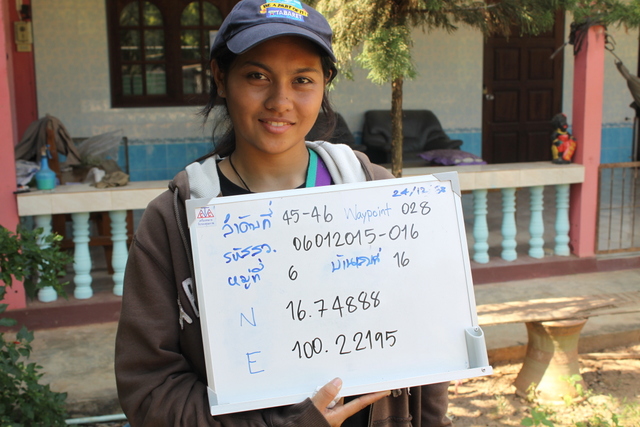 24/12/58
ลำดับที่ 45-46 Waypoint 028
รหัสรว. 06012015-016
หมู่ที่ 6 บ้านเลขที่ 16
N 16.74888
E 100.22195